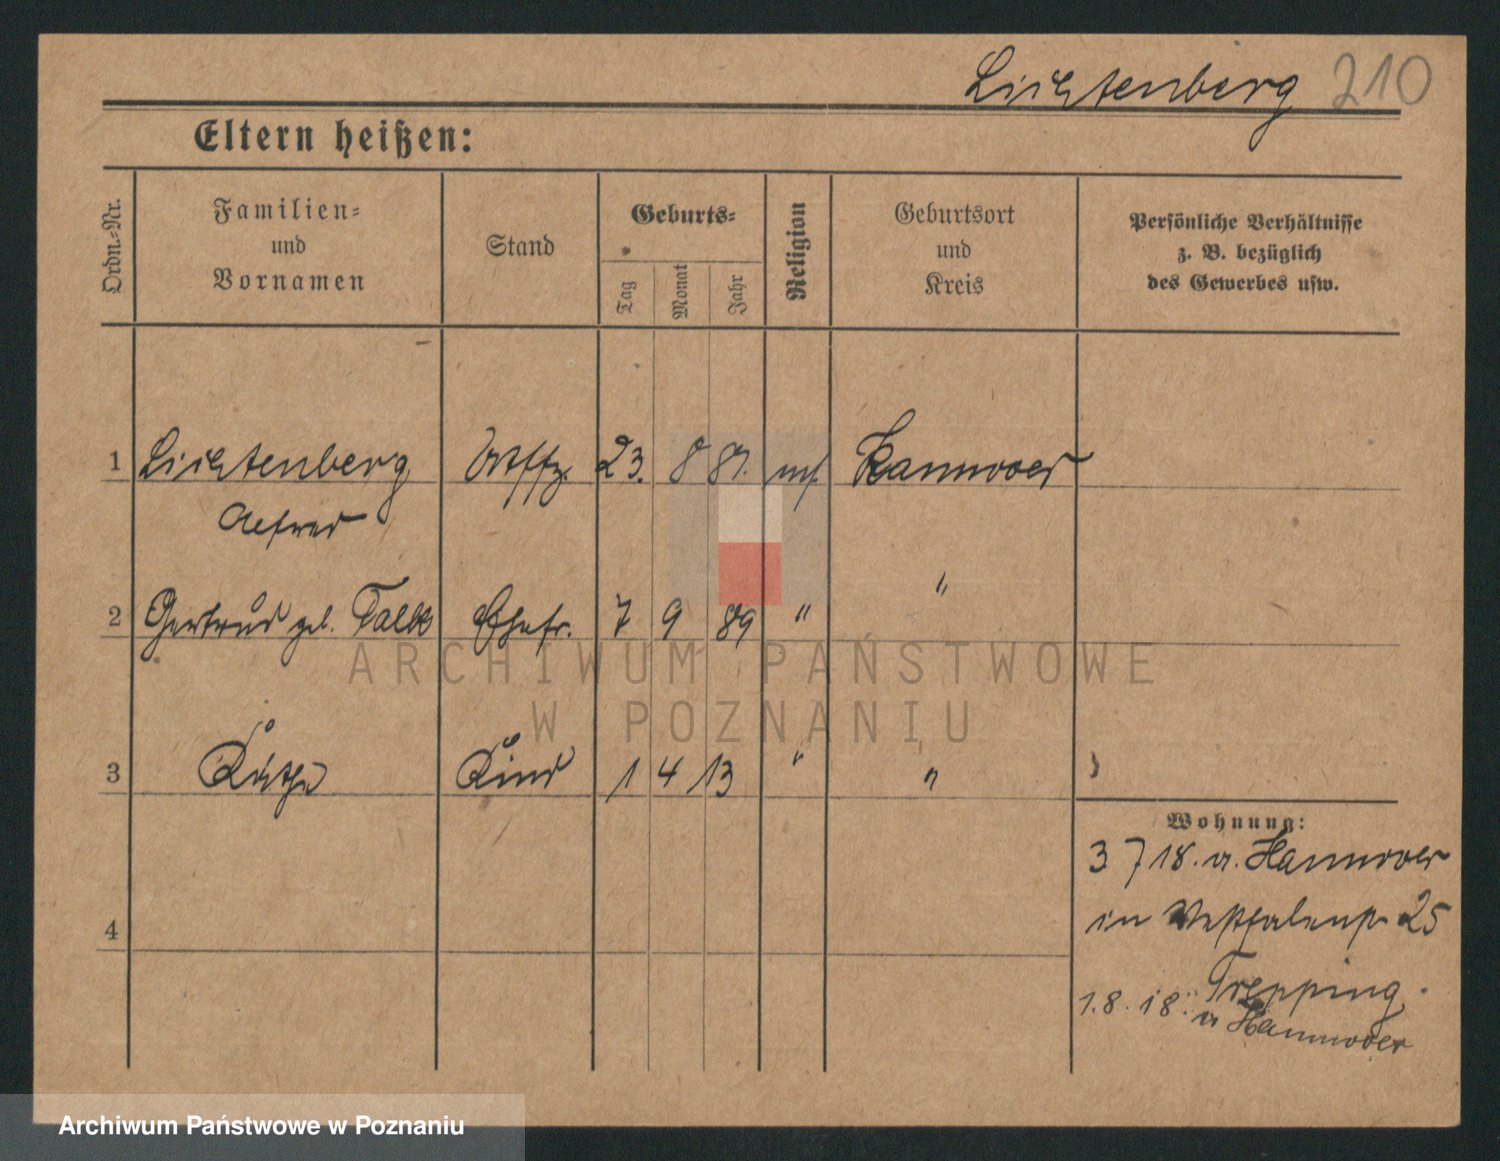 Lichtenberg 210
Eltern heißen:
Ordn.-Nr.
Familien-
und
Vornamen
Stand
Geburts-
Tag
Monat
Jahr
Religion
Geburtsort
und
Kreis
Persönliche Verhältnisse
z. B. bezüglich
des Gewerbes usw.
1 Lichtenberg 23. 8 87. Hannover
Alfred
2 Gertrud geb. Falk Ehefr. 7 9 89 " "
3 Käthe Kind 1 4 13 " "
4
Wohnung:
3 7 18. v. Hannover
in Westfalenstr 25
Trepping.
1.8.18. n Hannover
ARCHIWUM PAŃSTWOWE
W POZNANIU
Archiwum Państwowe w Poznaniu